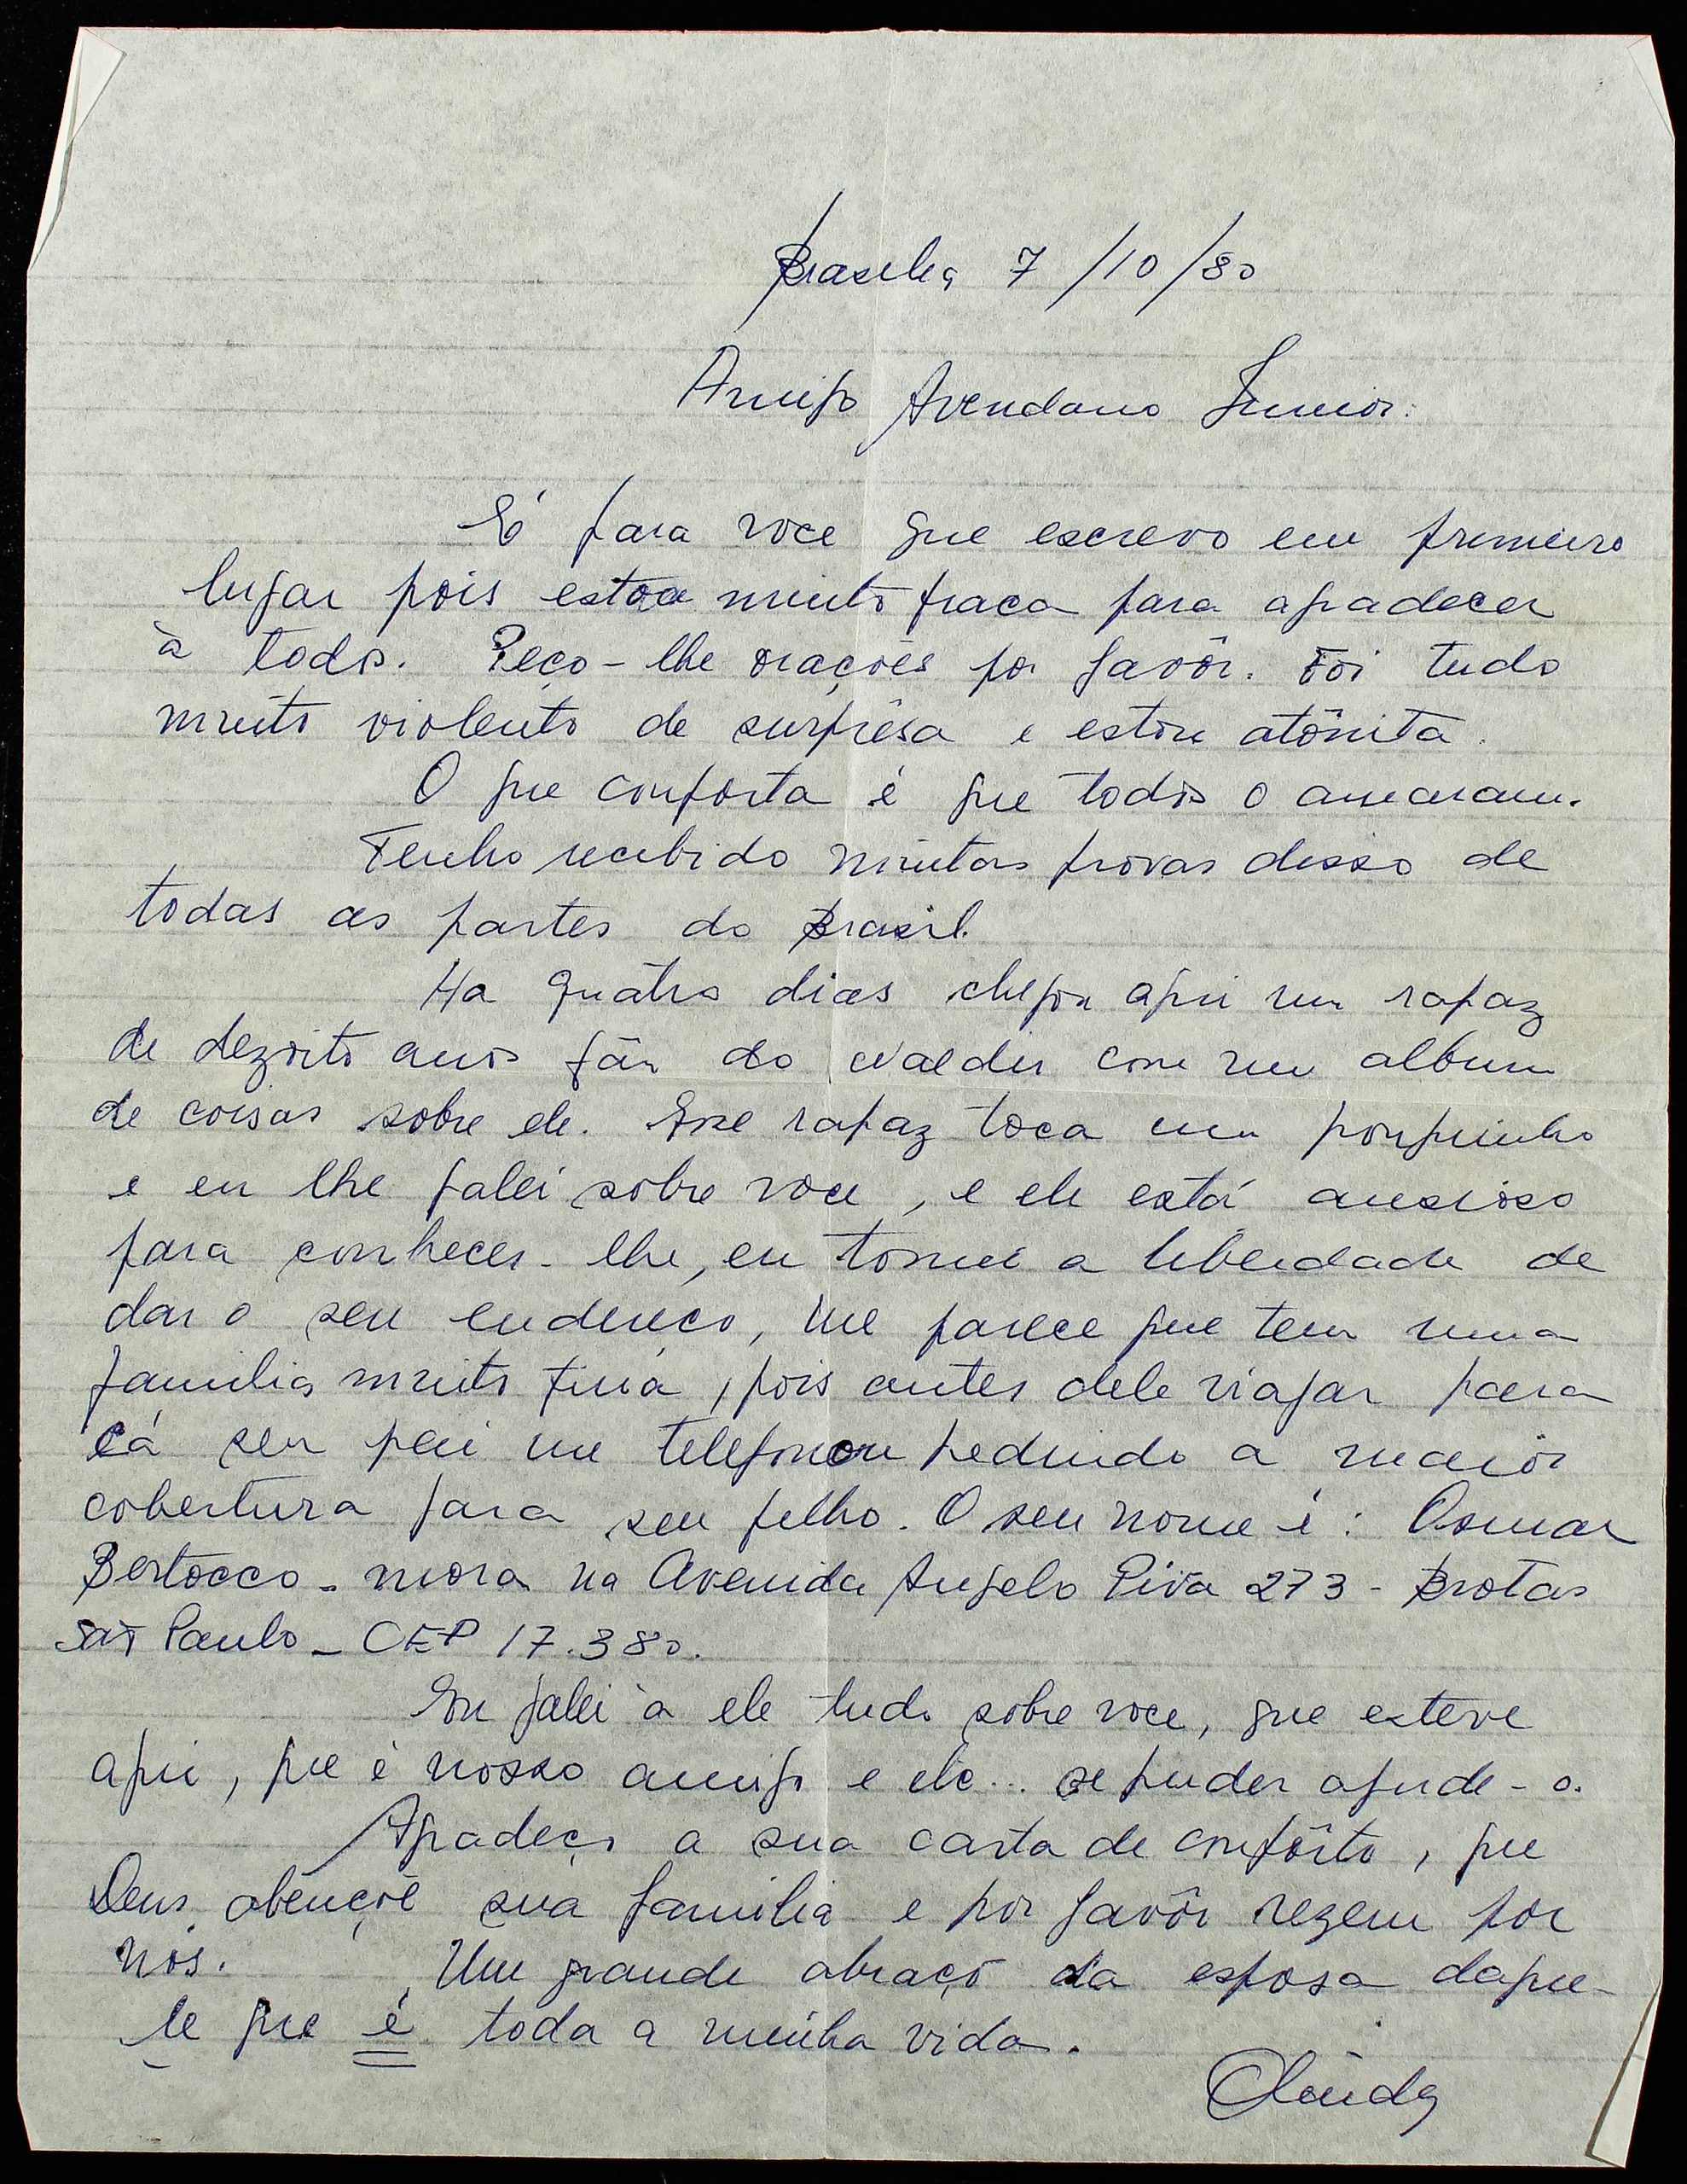 Brasilia 7/10/80
Amigo Avendano Junior:
É para voce que escrevo em primeiro
lugar pois estou muito fraca para agradecer
à todos. Peço-lhe orações por favôr. Foi tudo
muito violento de surprêsa e estou atônita.
O que conforta é que todos o amaram.
Tenho recebido muitas provas disso de
todas as partes do Brasil.
Ha quatro dias chegou aqui um rapaz
de dezoito anos fãn do Waldir com um album
de coisas sobre ele. Esse rapaz toca um pouquinho
e eu lhe falei sobre voce, e ele está ansioso
para conhecer-lhe, eu tomei a liberdade de
dar o seu endereço, me parece que tem uma
familia muito fina, pois antes dele viajar para
cá seu pai me telefonou pedindo a maior
cobertura para seu filho. O seu nome é: Osmar
Bertocco - mora na Avenida Angelo Piva 273 - Brotas
São Paulo - CEP 17.380.
Eu falei à ele tudo sobre voce, que esteve
aqui, que é nosso amigo e etc... se puder ajude-o.
Agradeço a sua carta de confôrto, que
Deus abençôe sua familia e por favôr rezem por
nós. Um grande abraço da esposa daque-
le que é toda a minha vida.
Olinda